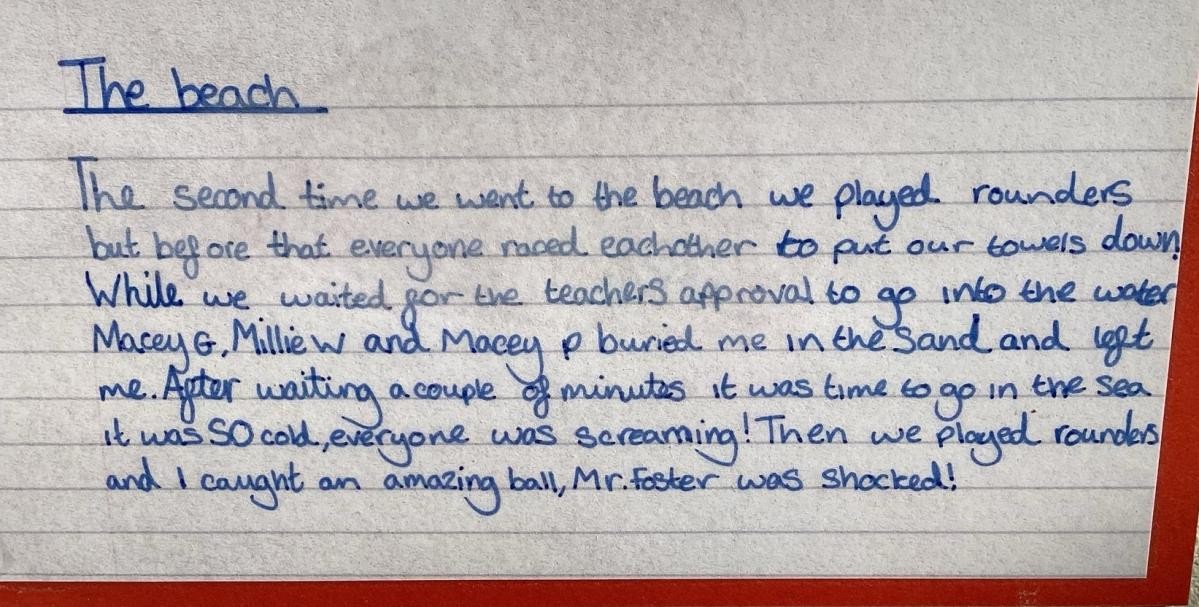 The beach
The second time we went to the beach we played rounders
but before that everyone raced eachother to put our towels down.
While we waited for the teachers approval to go into the water
Macey G, Millie W and Macey p buried me in the sand and left
me. After waiting a couple of minutes it was time to go in the sea
it was SO cold, everyone was screaming! Then we played rounders
and I caught an amazing ball, Mr. Foster was shocked!